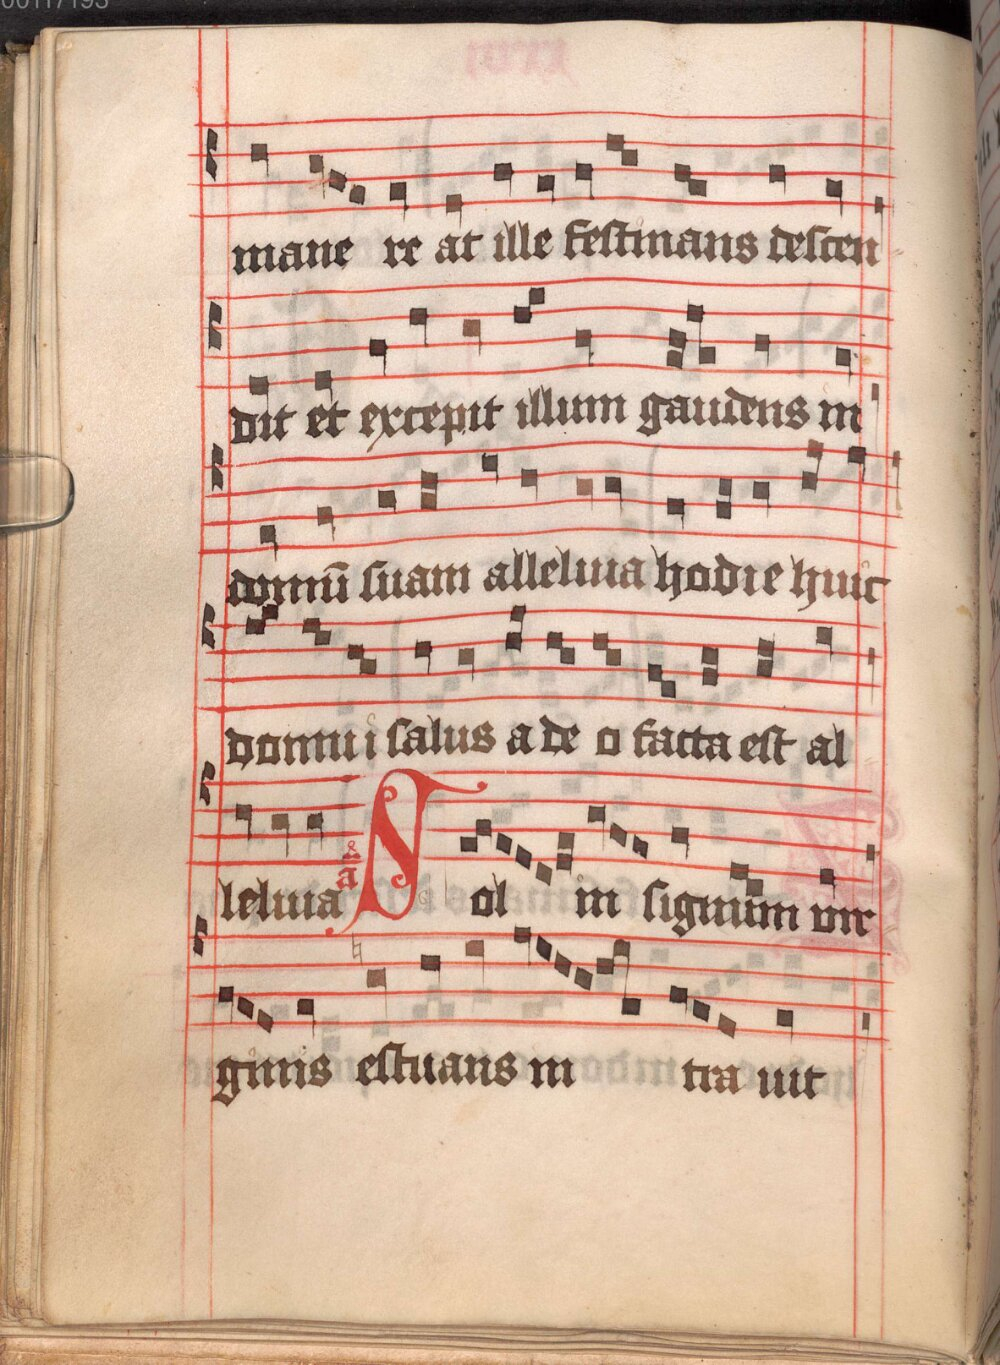 mane re at ille festinans descen
dit et excepit illum gaudens in
domū suam alleluia hodie huic
domui salus a de o facta est al
leluia a Sol in signum vir
ginis estuans in tra uit